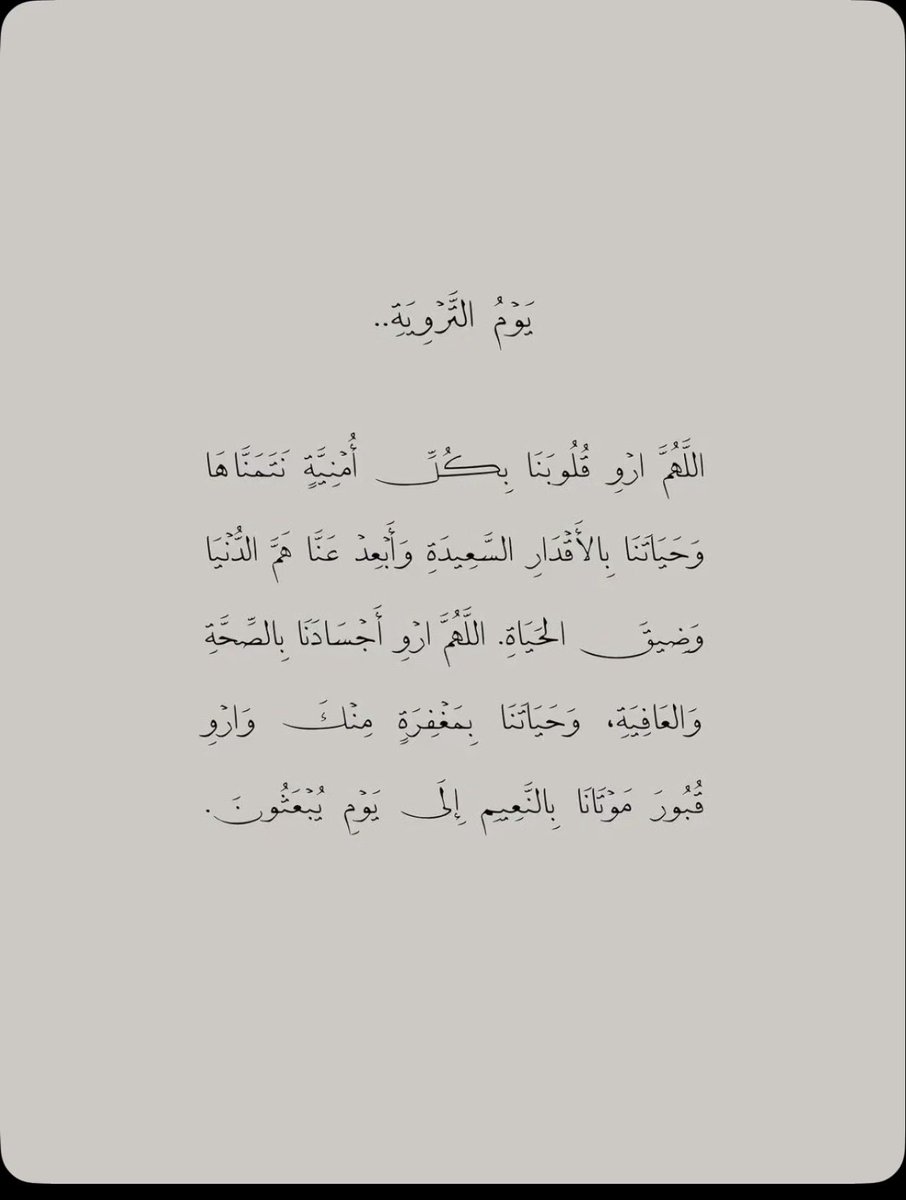 يَوْمُ التَّرْوِيَةِ..
اللَّهُمَّ ارْوِ قُلُوبَنَا بِكُلِّ أُمْنِيَّةٍ نَتَمَنَّاهَا
وَحَيَاتَنَا بِالأَقْدَارِ السَّعِيدَةِ وَأَبْعِدْ عَنَّا هَمَّ الدُّنْيَا
وَضِيقَ الحَيَاةِ. اللَّهُمَّ ارْوِ أَجْسَادَنَا بِالصِّحَّةِ
وَالعَافِيَةِ، وَحَيَاتَنَا بِمَغْفِرَةٍ مِنْكَ وَارْوِ
قُبُورَ مَوْتَانَا بِالنَّعِيمِ إِلَى يَوْمِ يُبْعَثُونَ.